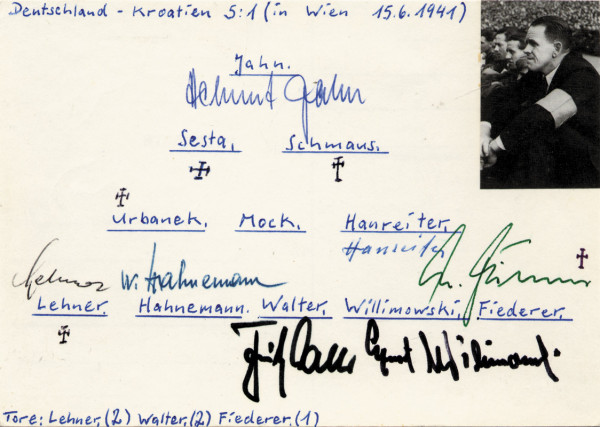 Deutschland - Kroatien 5:1 (in Wien 15.6.1941)
Jahn.
Helmut Jahn
Sesta, Schmaus.
Urbanek, Mock. Hanreiter,
Hanreiter
Lehner W. Hahnemann
Lehner. Hahnemann. Walter, Willimowski, Fiederer,
Fritz Walter Ernst Willimowski
Tore: Lehner, (2) Walter, (2) Fiederer, (1)